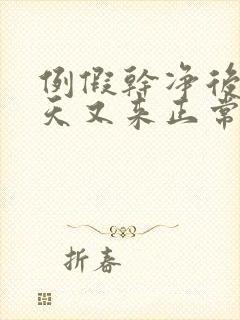 例假幹净後
天又来正常
折春